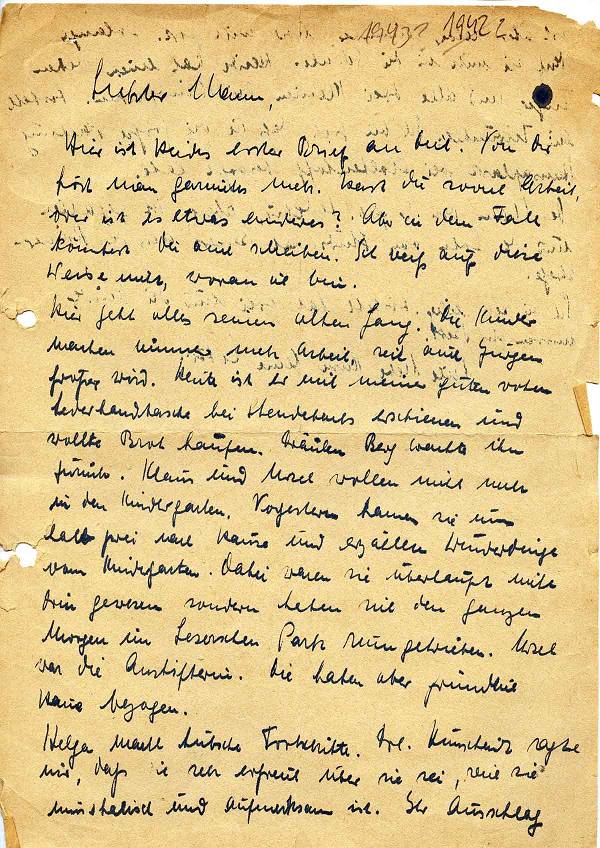 1943? 1942?
Liebster Mann,
Hier ist Heides erster Brief an dich. Von dir
hört man garnichts mehr. Hast du soviel Arbeit,
oder ist es etwas anderes? Aber in dem Fall
könntest du auch schreiben. Ich weiß auf diese
Weise nicht, woran ich bin.
Hier geht alles seinen alten Gang. Die Kinder
machen immer mehr Arbeit, seit auch Jürgen
größer wird. Heute ist er mit meiner guten roten
Lederhandtasche bei erschienen und
wollte Brot kaufen. Fräulein Berg brachte ihn
zurück. Klaus und Ursel wollen nicht mehr
in den Kindergarten. Vorgestern kamen sie um
halb drei nach Hause und erzählten Wunderdinge
vom Kindergarten. Dabei waren sie überhaupt nicht
drin gewesen sondern haben sich den ganzen
Morgen im Park rumgetrieben. Ursel
war die Anstifterin. Sie haben aber gründlich
Haue bezogen.
Helga macht hübsche Fortschritte. Frl. sagte
mir, daß sie sehr erfreut über sie sei, wie sie
musikalisch und aufmerksam ist. Der Ausschlag